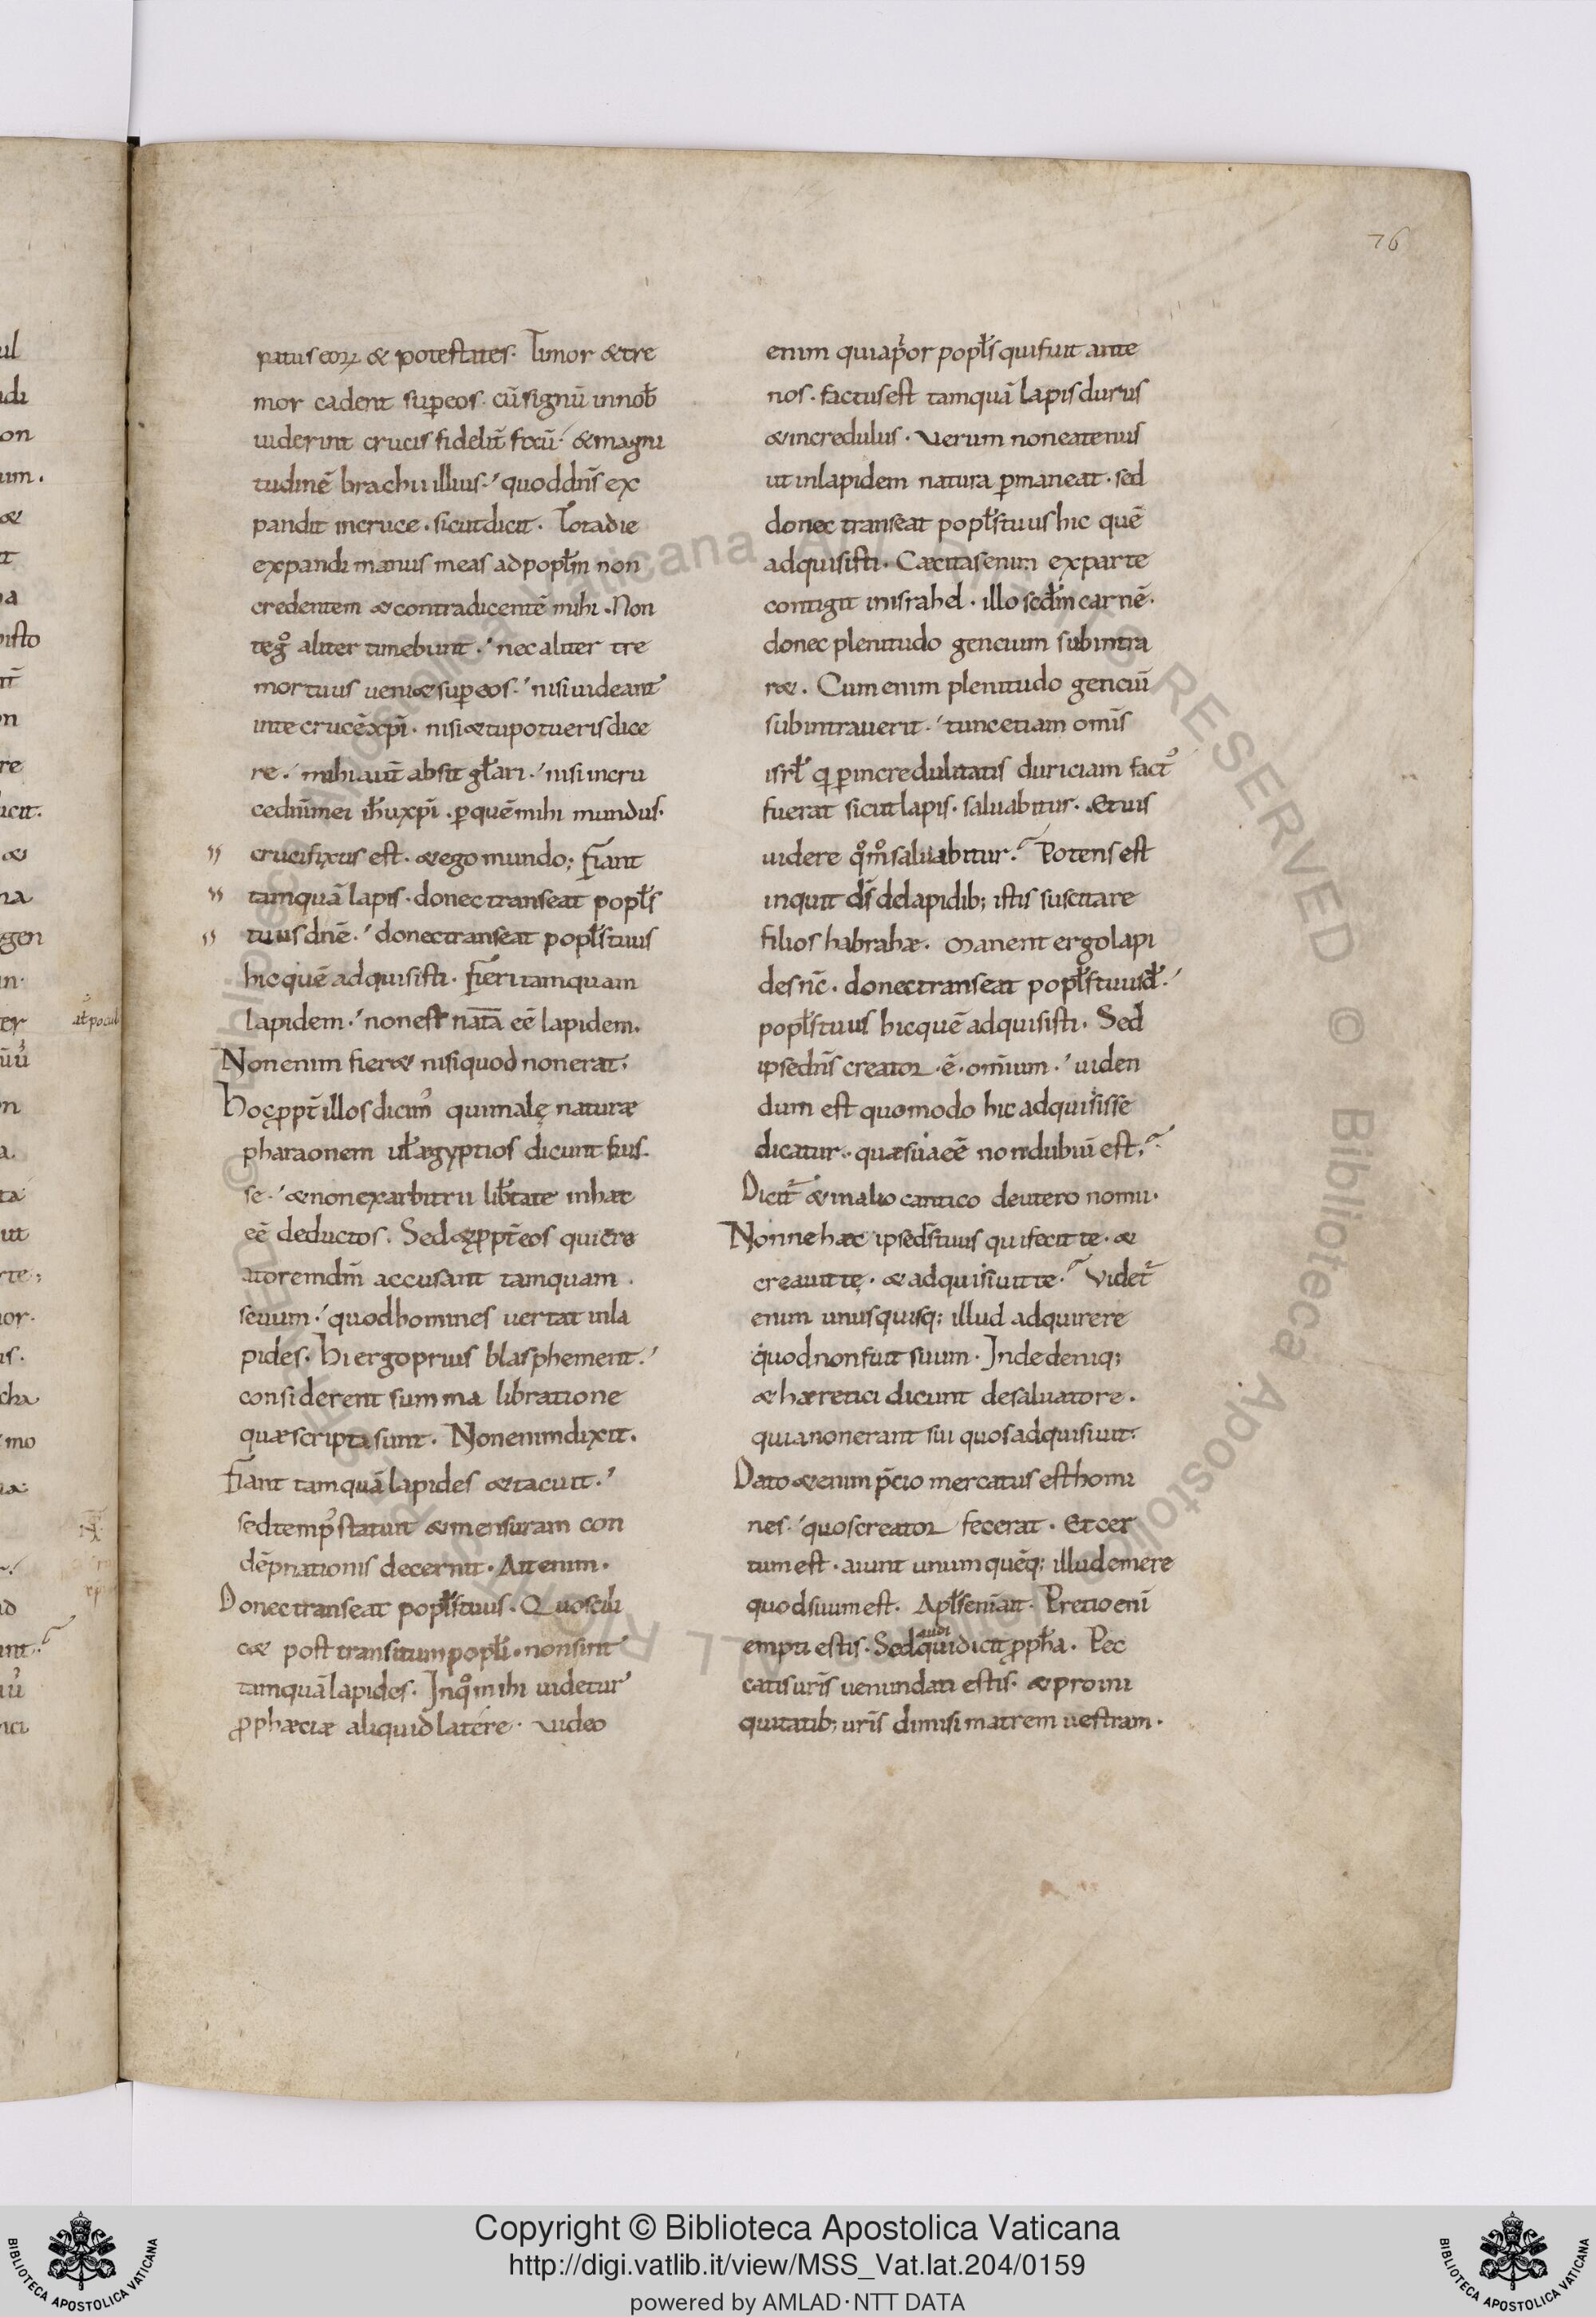 76
patus eoꝝ & potestates. Timor & tre
mor cadent super eos. cū signū in nob̄
uiderint crucis fidelit̄ fixū. & magni
tudinē brachii illius. quod dn̄s ex
pandit in cruce. sicut dicit. Tota die
expandi manus meas ad popl̄m non
credentem & contradicentē mihi. Non
& contradicentē
teg̊ aliter timebunt. nec aliter tre
mor tuus ueni& super eos. nisi uideant
in te crucē xp̄i. nisi & tu potueris dice
re. mihi aut̄ absit gl̄ari. nisi in cru
ce dn̄i mei ih̄u xp̄i. ꝑ quē mihi mundus
crucifixus est. & ego mundo; Fiant
tamquā lapis. donec transeat popl̄s
tuus dn̄e. donec transeat popl̄s tuus
hic quē adquisisti. Fieri tamquam
lapidem. non est nat̄a eē lapidem.
Non enim fier& nisi quod non erat.
Hoc ꝓpt̄ illos dicim᾽ qui malę naturæ
pharaonem ul̄ ægyptios dicunt fuis
se. & non ex arbitrii lib̄tate in hæc
eē deductos. Sed & ꝓpt̄ eos qui cre
atorem dm̄ accusant tamquam
seuum. quod homines uertat in la
pides. Hi ergo prius blasphement.
considerent summa libratione
quæ scripta sunt. Non enim dixit.
Fiant tamquā lapides & tacuit.
sed temp᾽ statuit & mensuram con
dēpnationis decernit. Ait enim.
Donec transeat popl̄s tuus. Quo scili
c& post transitum popl̄i. non sint
tamquā lapides. In q̊ mihi uidetur
ꝓphæciæ aliquid latere. Video
enim quia p̄or popl̄s qui fuit ante
nos. factus est tamquā lapis durus
& incredulus. Verum non eatenus
ut in lapidem natura ꝑmaneat. sed
donec transeat popl̄s tuus hic quē
adquisisti. Cæcitas enim ex parte
contigit in israhel. illo scd̄m carnē.
donec plenitudo gencium subintra
r&. Cum enim plenitudo genciū
subintrauerit. tunc etiam omīs
isrl̄ q ꝑ incredulitatis duriciam fact᾽
fuerat sicut lapis. saluabitur. Et uis
uidere q̊m̊ saluabitur. Potens est
inquit ds̄ de lapidib; istis suscitare
filios habrahæ. Manent ergo lapi
des nc̄. donec transeat popl̄s tuus d̄.
popl̄s tuus hic quē adquisisti. Sed
ipse dn̄s creator .ē. omīum. uiden
dum est quomodo hic adquisisse
dicatur. quæ sua eē non dubiū est.
Dicit̄ & in alio cantico deuteronomii.
Nonne hæc ipse ds̄ tuus qui fecit te. &
creauit te. & adquisiuit te. Videt̄
enim unusquisq; illud adquirere
quod non fuit suum. Inde deniq;
& hæretici dicunt de saluatore.
quia non erant sui quos adquisiuit.
Dato & enim p̄cio mercatus est homi
nes. quos creator fecerat. Et cer
tum est. aiunt unum quēq; illud emere
quod suum est. Apl̄s eni ait. Pretio enī
audi
empti estis. Sed quid dicit ꝓph̄a. Pec
catis ur̄is uenundati estis. & pro ini
quitatib; ur̄is dimisi matrem uestram.
Copyright © Biblioteca Apostolica Vaticana
http://digi.vatlib.it/view/MSS_Vat.lat.204/0159
powered by AMLAD·NTT DATA